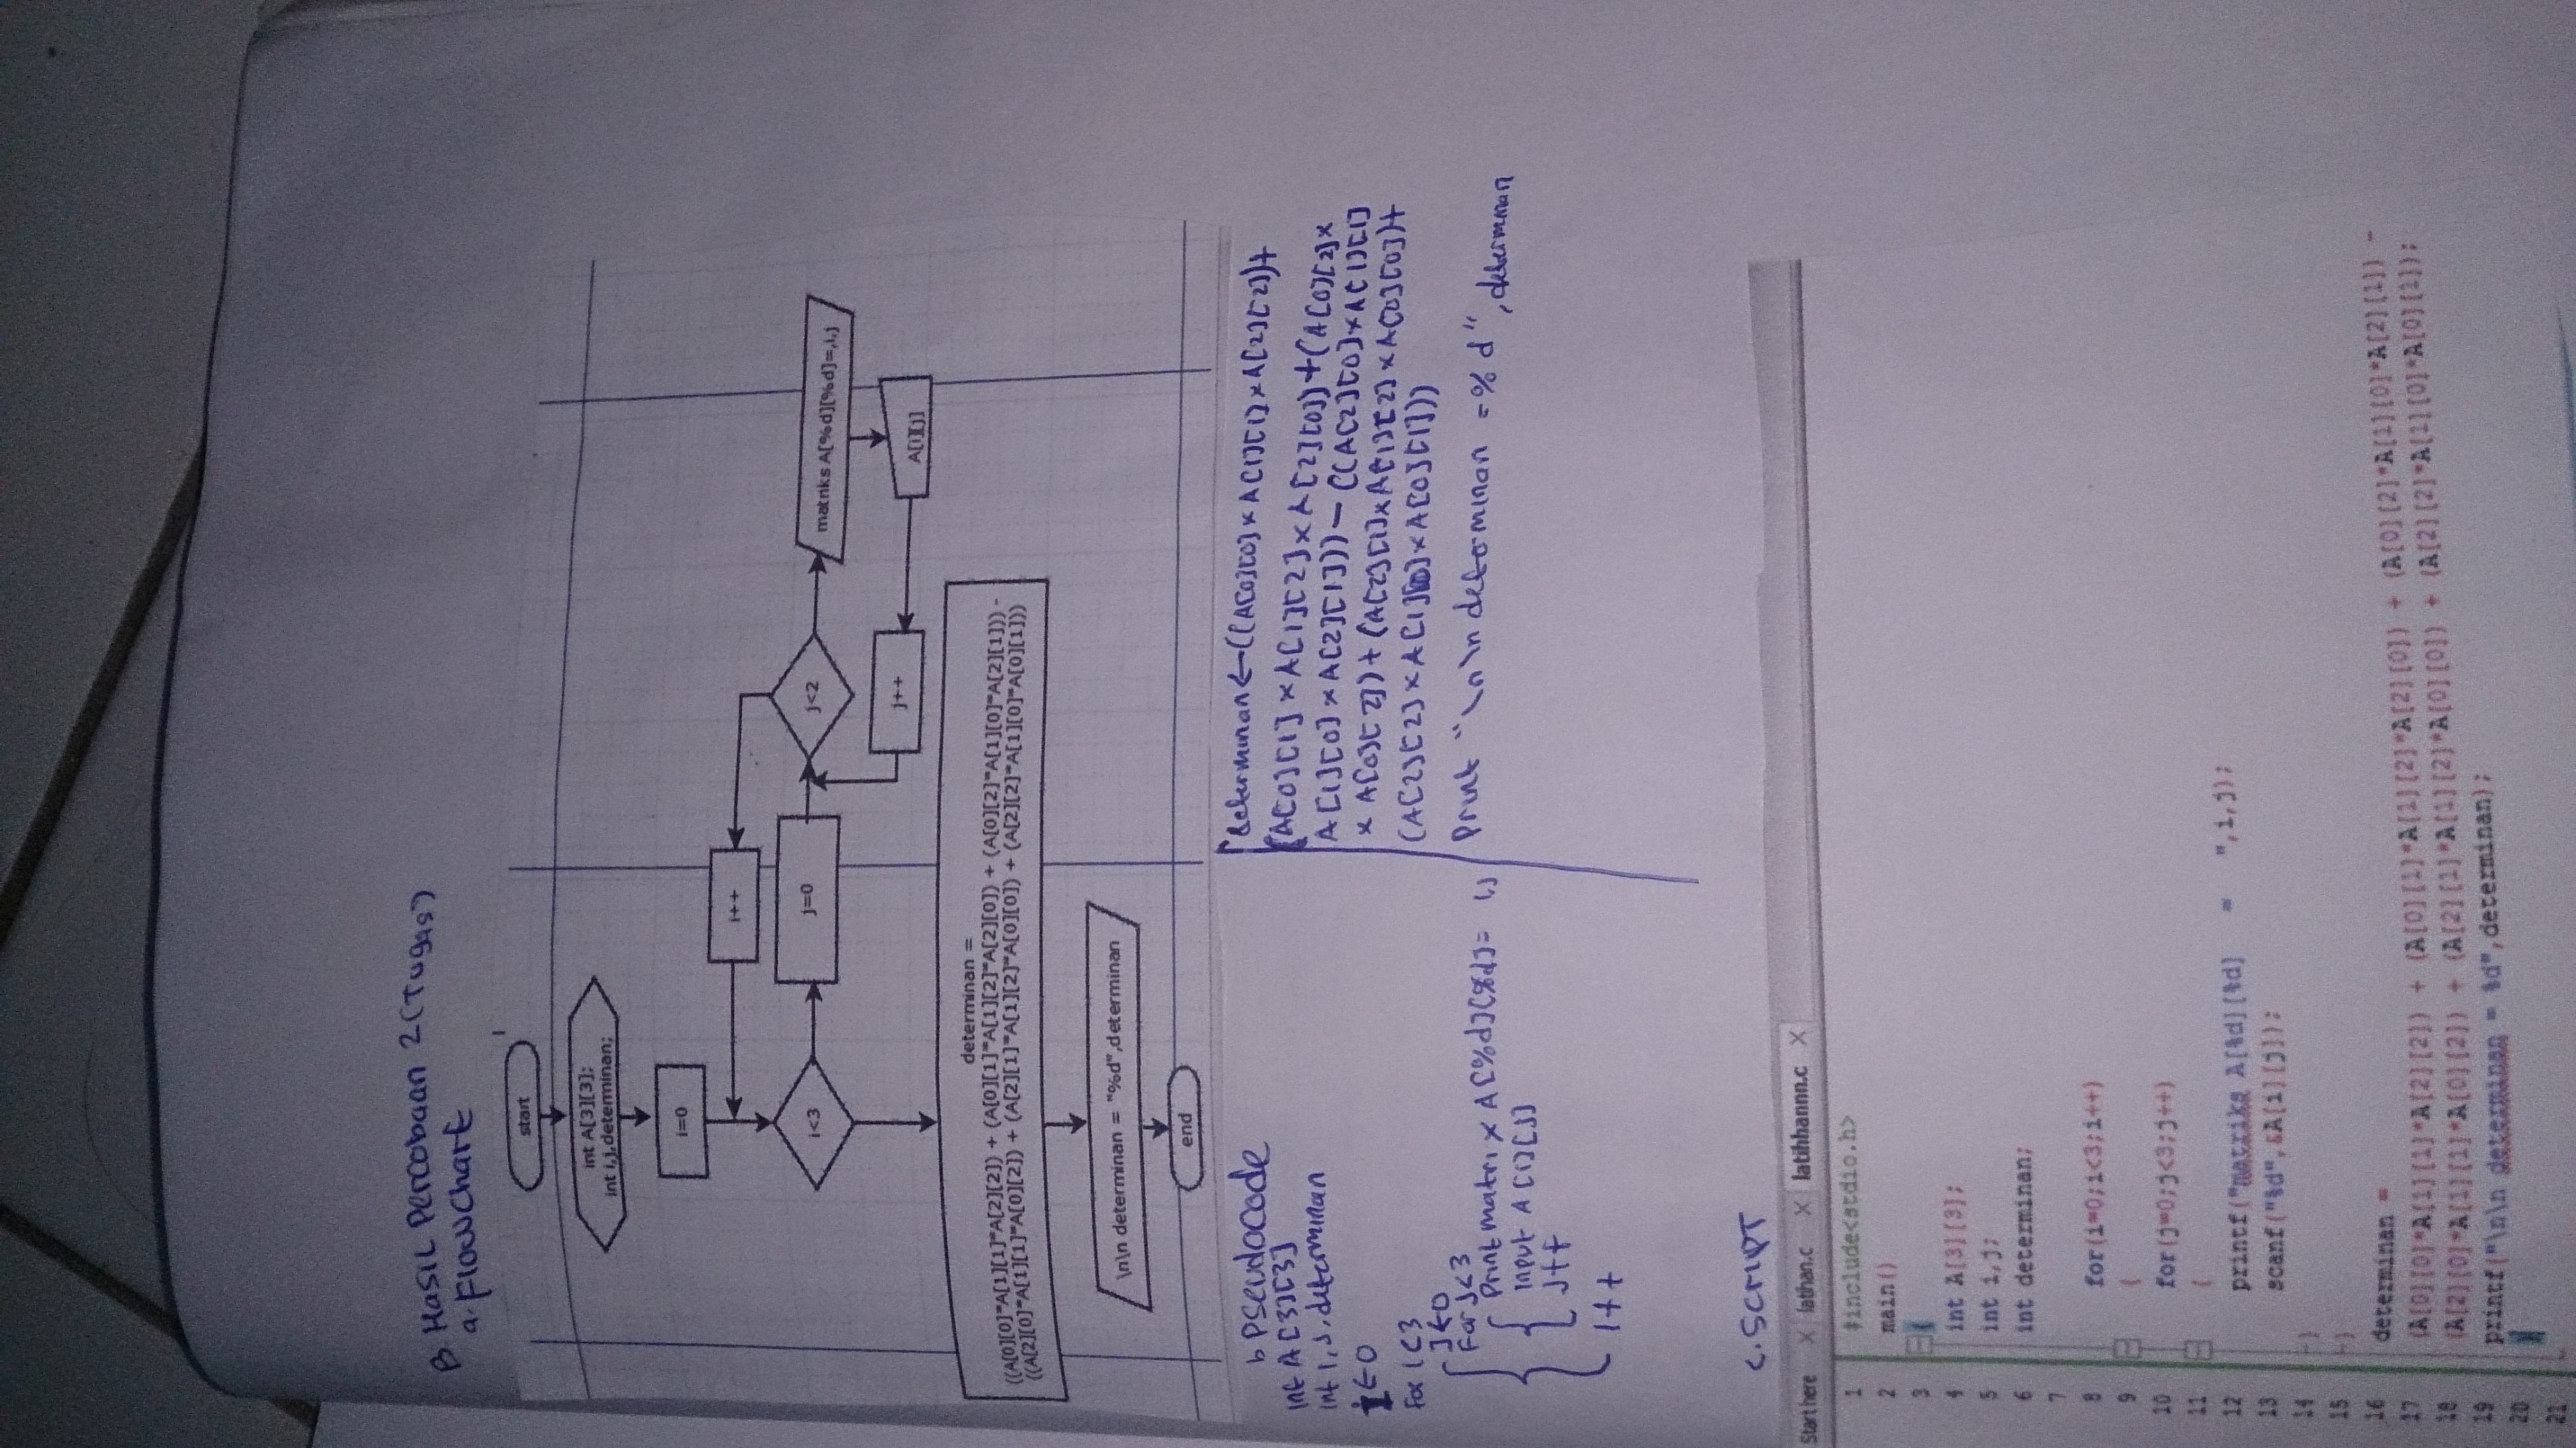 B Hasil Percobaan 2 (Tugas)
a. Flowchart
start
int A[3][3];
int i,j,determinan;
i=0
i++
i<3
j=0
j<2
matriks A[%d][%d]=,i,j
j++
A[i][j]
determinan =
((A[0][0]*A[1][1]*A[2][2]) + (A[0][1]*A[1][2]*A[2][0]) + (A[0][2]*A[1][0]*A[2][1])) -
((A[2][0]*A[1][1]*A[0][2]) + (A[2][1]*A[1][2]*A[0][0]) + (A[2][2]*A[1][0]*A[0][1]))
\n\n determinan = "%d",determinan
end
b Pseudocode
int A[3][3]
int i,j,determinan
i←0
For i<3
{ j←0
For j<3
{ Print matrix A[%d][%d]= i,j
Input A[i][j]
{ j++
{ i++
determinan←((A[0][0]×A[1][1]×A[2][2])+
(A[0][1]×A[1][2]×A[2][0])+(A[0][2]×
A[1][0]×A[2][1]))-((A[2][0]×A[1][1]
×A[0][2])+(A[2][1]×A[1][2]×A[0][0])+
(A[2][2]×A[1][0]×A[0][1]))
Print "\n\n determinan =%d",determinan
c. Script
Start here X latihan.c X latihhannnn.c X
1 #include<stdio.h>
2 main()
3 {
4 int A[3][3];
5 int i,j;
6 int determinan;
7
8 for(i=0;i<3;i++)
9 {
10 for(j=0;j<3;j++)
11 {
12 printf("matriks A[%d][%d] = ",i,j);
13 scanf("%d",&A[i][j]);
14 }
15 }
16 determinan =
17 (A[0][0]*A[1][1]*A[2][2]) + (A[0][1]*A[1][2]*A[2][0]) + (A[0][2]*A[1][0]*A[2][1]) -
18 (A[2][0]*A[1][1]*A[0][2]) + (A[2][1]*A[1][2]*A[0][0]) + (A[2][2]*A[1][0]*A[0][1]);
19 printf("\n\n determinan = %d",determinan);
20 }
21